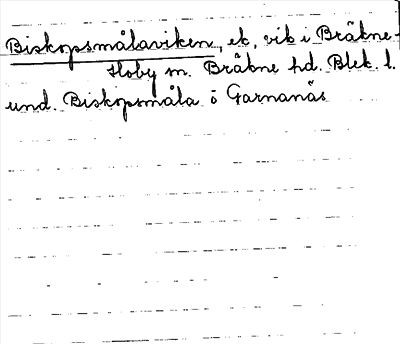 Biskopsmålaviken, ek, vik i Bräkne-
Hoby sn. Bräkne hd. Blek. l.
und. Biskopsmåla o Garnanäs